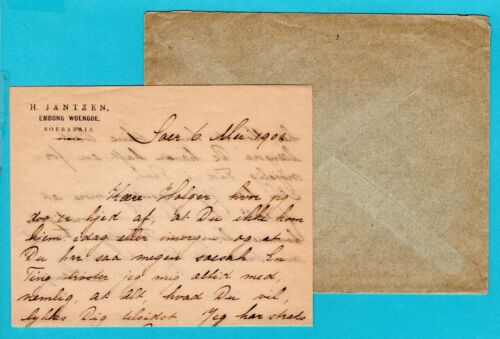 H. JANTZEN,
EMBONG WOENGOE,
SOERABAIA.
Soer 6 Mei 1902
Kære Holger, hvor jeg
dog er kjed af, at Du ikke kom
hjem idag eller imorgen og at
Du har saa megen En
Ting trøster jeg mig altid med,
nemlig, at alt, hvad Du vil,
lykkes Dig tilsidst. Jeg har straks